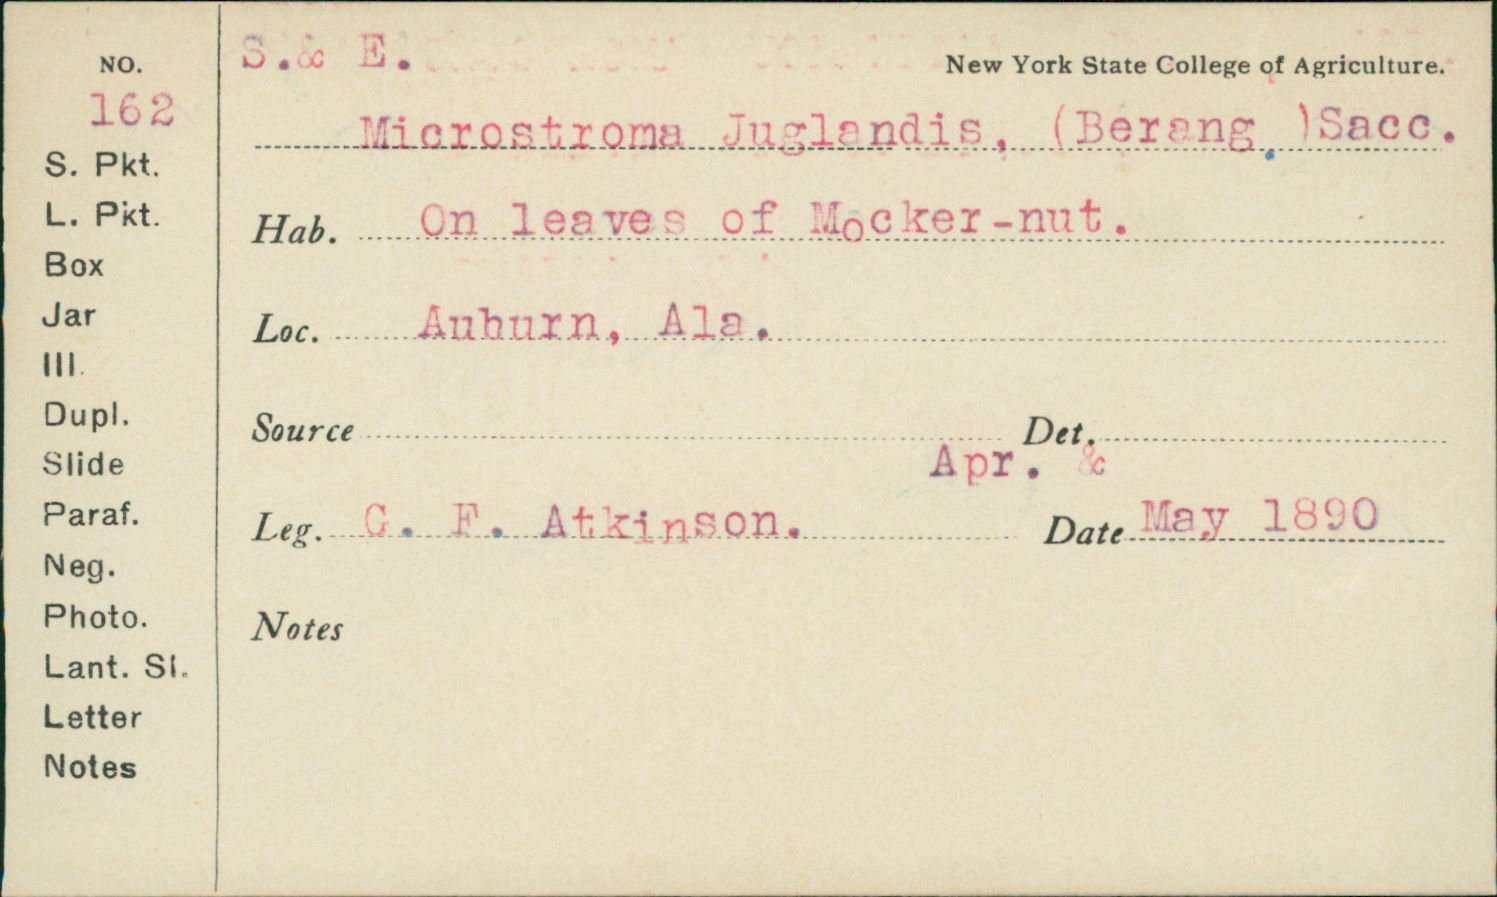 NO.
162
S. Pkt.
L. Pkt.
Box
Jar
Ill.
Dupl.
Slide
Paraf.
Neg.
Photo.
Lant. Sl.
Letter
Notes
S.& E.
New York State College of Agriculture.
Microstroma Juglandis, (Berang.)Sacc.
Hab. On leaves of Mocker-nut.
Loc. Auburn, Ala.
Source Det.
Apr. &
Leg. G. F. Atkinson. Date May 1890
Notes